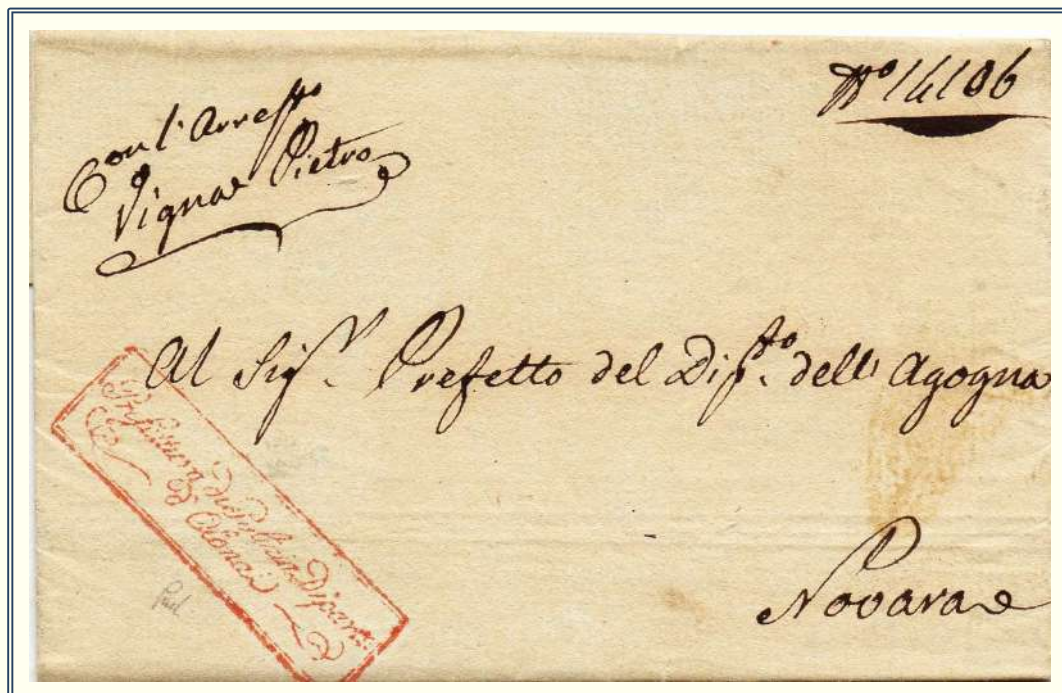 N.º 14106
Con l'Arresto
Vigna Pietro
Al Sig.r Prefetto del Dip.to dell'Agogna
Prefettura di Polizia Dipart.
d'Olona
Novara